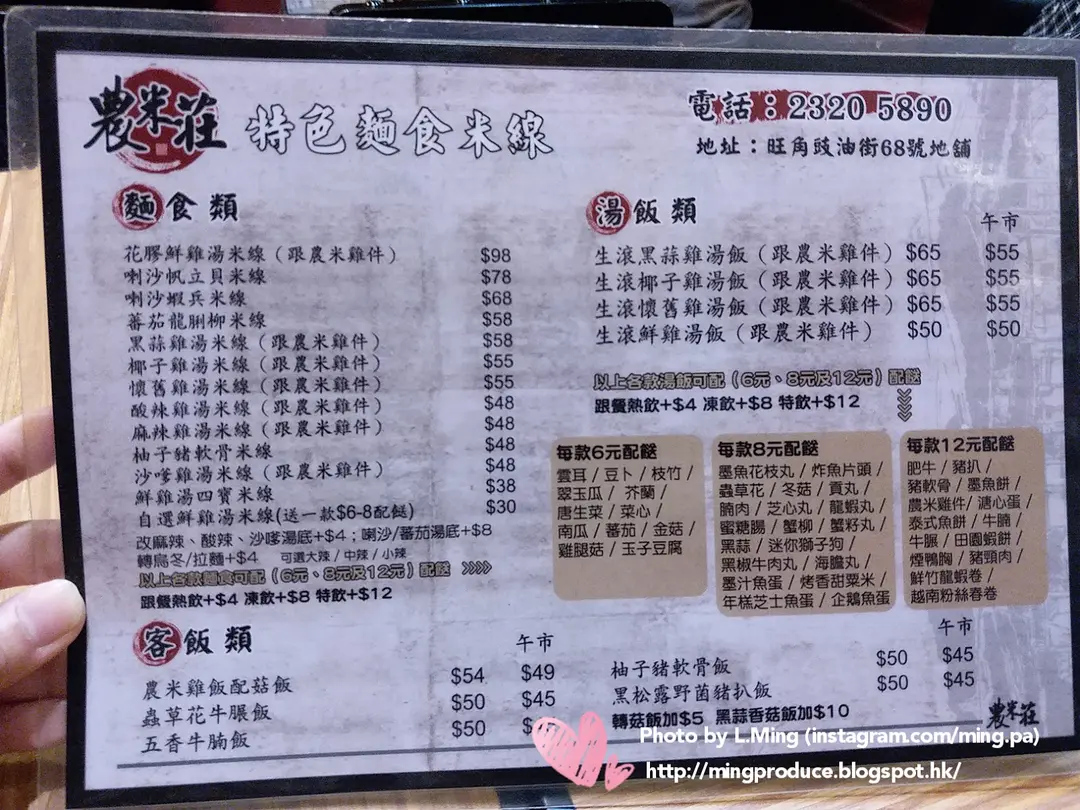 農米莊 特色麵食米線
電話：2320 5890
地址：旺角豉油街68號地舖
麵食類
花膠鮮雞湯米線（跟農米雞件） $98
喇沙帆立貝米線 $78
喇沙蝦兵米線 $68
蕃茄龍脷柳米線 $58
黑蒜雞湯米線（跟農米雞件） $58
椰子雞湯米線（跟農米雞件） $55
懷舊雞湯米線（跟農米雞件） $55
酸辣雞湯米線（跟農米雞件） $48
麻辣雞湯米線（跟農米雞件） $48
柚子豬軟骨米線 $48
沙嗲雞湯米線（跟農米雞件） $48
鮮雞湯四寶米線 $38
自選鮮雞湯米線(送一款$6-8配餸) $30
改麻辣、酸辣、沙嗲湯底+$4；喇沙/蕃茄湯底+$8
轉烏冬/拉麵+$4 可選大辣 / 中辣 / 小辣
以上各款麵食可配（6元、8元及12元）配餸 》》》》
跟餐熱飲+$4 凍飲+$8 特飲+$12
湯飯類
午市
生滾黑蒜雞湯飯（跟農米雞件） $65 $55
生滾椰子雞湯飯（跟農米雞件） $65 $55
生滾懷舊雞湯飯（跟農米雞件） $65 $55
生滾鮮雞湯飯（跟農米雞件） $50 $50
以上各款湯飯可配（6元、8元及12元）配餸
跟餐熱飲+$4 凍飲+$8 特飲+$12
每款6元配餸
雲耳 / 豆卜 / 枝竹 /
翠玉瓜 / 芥蘭 /
唐生菜 / 菜心 /
南瓜 / 蕃茄 / 金菇 /
雞腿菇 / 玉子豆腐
每款8元配餸
墨魚花枝丸 / 炸魚片頭 /
蟲草花 / 冬菇 / 貢丸 /
腩肉 / 芝心丸 / 龍蝦丸 /
蜜糖腸 / 蟹柳 / 蟹籽丸 /
黑蒜 / 迷你獅子狗 /
黑椒牛肉丸 / 海膽丸 /
墨汁魚蛋 / 烤香甜粟米 /
年糕芝士魚蛋 / 企鵝魚蛋
每款12元配餸
肥牛 / 豬扒 /
豬軟骨 / 墨魚餅 /
農米雞件 / 溏心蛋 /
泰式魚餅 / 牛腩 /
牛𦟌 / 田園蝦餅 /
煙鴨胸 / 豬頸肉 /
鮮竹龍蝦卷 /
越南粉絲春卷
客飯類
午市
農米雞飯配菇飯 $54 $49
蟲草花牛脤飯 $50 $45
五香牛腩飯 $50
午市
柚子豬軟骨飯 $50 $45
黑松露野菌豬扒飯 $50 $45
轉菇飯加$5 黑蒜香菇飯加$10
農米莊
Photo by L.Ming (instagram.com/ming.pa)
http://mingproduce.blogspot.hk/